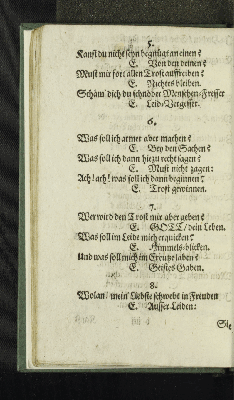 5.
Kanst du nicht seyn begnügt an einen?
E. Von den deinen?
Must mir fort allen Trost aufreiben?
E. Nichtes bleiben.
Schäm dich du schnöder Menschen-Fresser
E. Leid-Vergesser.
6.
Was soll ich armer aber machen?
E. Bey den Sachen?
Was soll ich dann hiezu recht sagen?
E. Must nicht zagen:
Ach! ach! was soll ich dann beginnen?
E. Trost gewinnen.
7.
Wer wird den Trost mir aber geben?
E. GOTT/ dein Leben.
Was soll im Leide mich erquicken?
E. Himmels-blicken.
Und was soll mich im Creutze laben?
E. Geistes Gaben.
8.
Wolan/ mein Liebste schwebt in Freuden
E. Ausser Leiden:
Sie